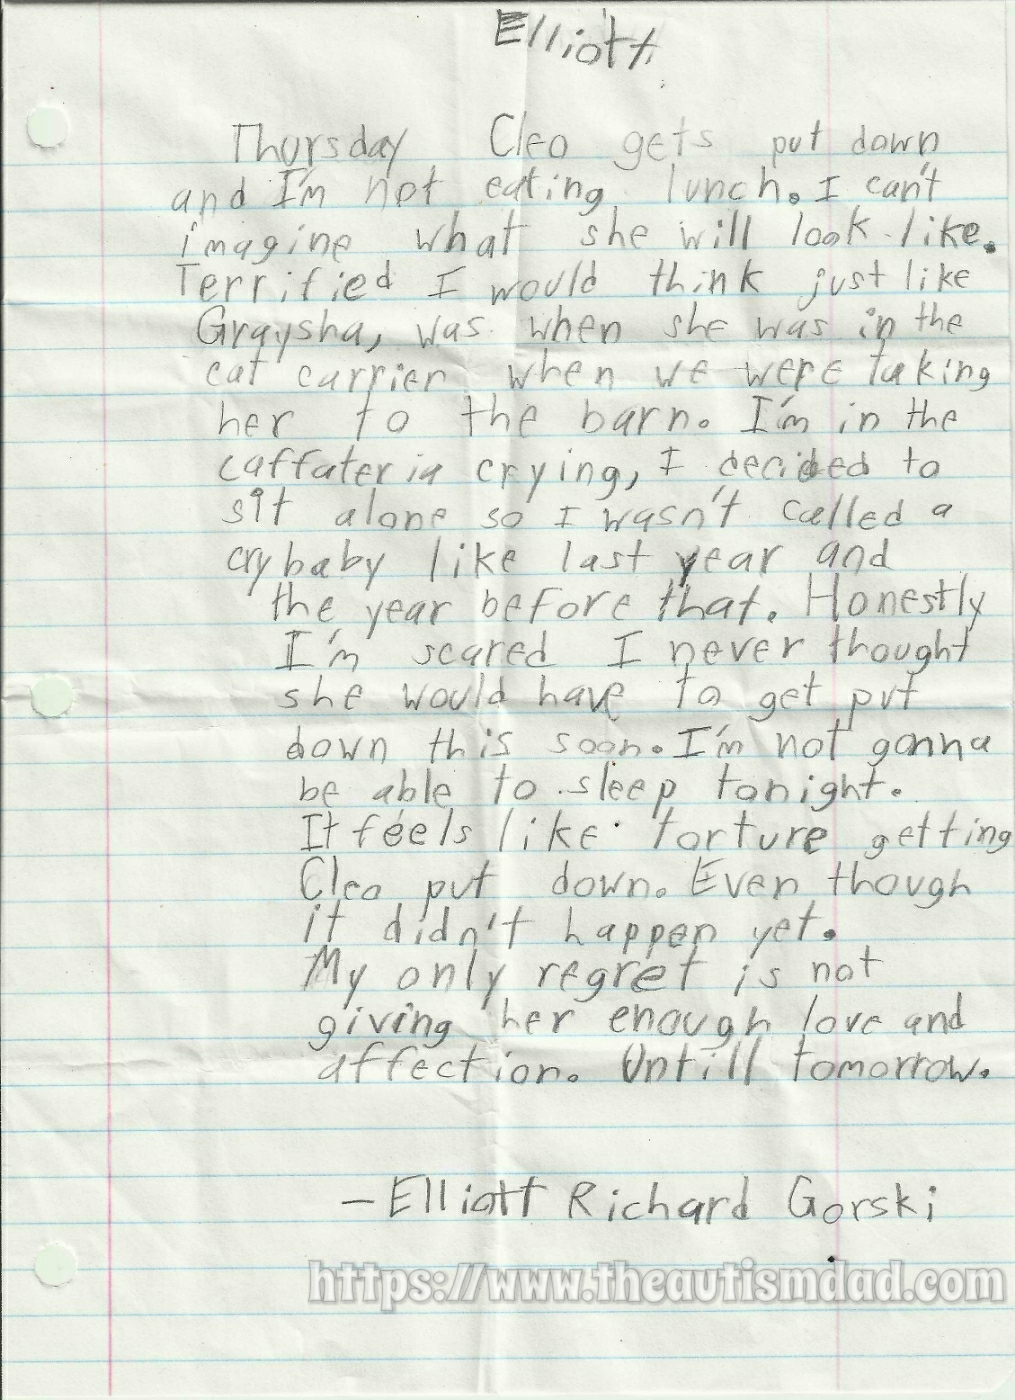 Elliott
Thursday Cleo gets put down
and I'm not eating lunch. I can't
imagine what she will look like.
Terrified I would think just like
Graysha, was when she was in the
cat carrier when we were taking
her to the barn. I'm in the
caffateria crying, I decided to
sit alone so I wasn't called a
crybaby like last year and
the year before that. Honestly
I'm scared I never thought
she would have to get put
down this soon. I'm not gonna
be able to sleep tonight.
It feels like torture getting
Cleo put down. Even though
it didn't happen yet.
My only regret is not
giving her enough love and
affection. Untill tomorrow.
- Elliott Richard Gorski
https://www.theautismdad.com